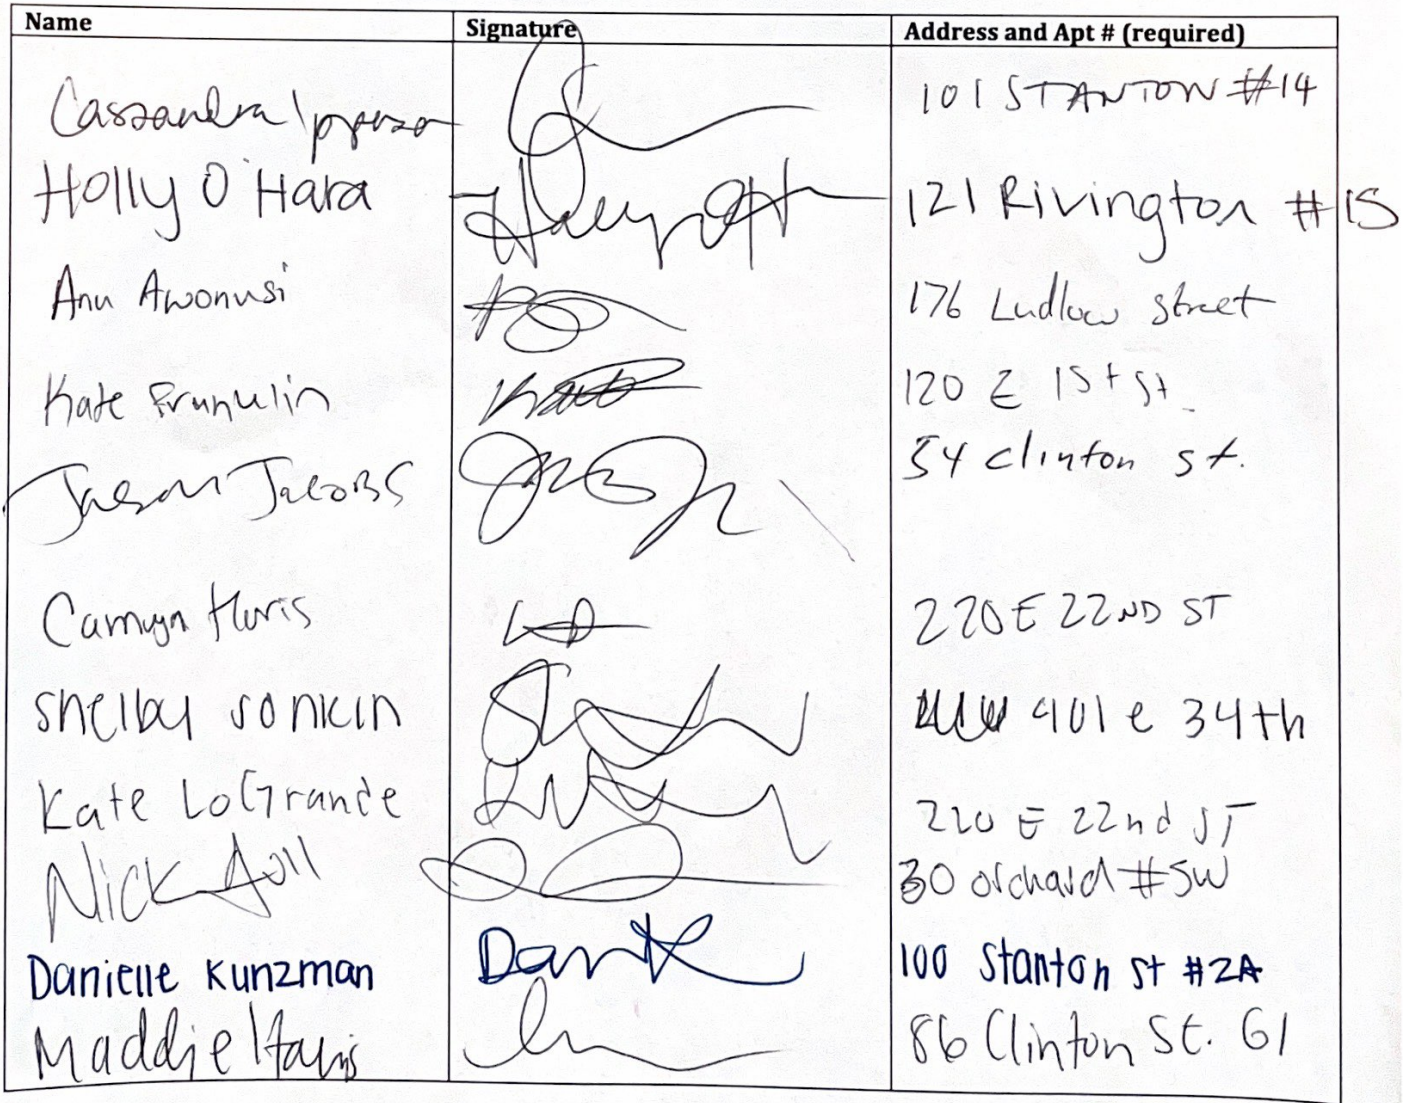 Name Signature Address and Apt # (required)
Cassandra 101 STANTON #14
Holly O'Hara 121 Rivington #15
Anu Awonusi 176 Ludlow Street
Kate 120 E 1st st.
Jason Jacobs 54 Clinton st.
Camryn Harris 220 E 22ND ST
Shelby Sonkin 401 e 34th
Kate LoGrande 220 E 22nd ST
Nick 30 orchard #5W
Danielle Kunzman DanK 100 Stanton St #2A
Maddie Harris 86 Clinton St. G1